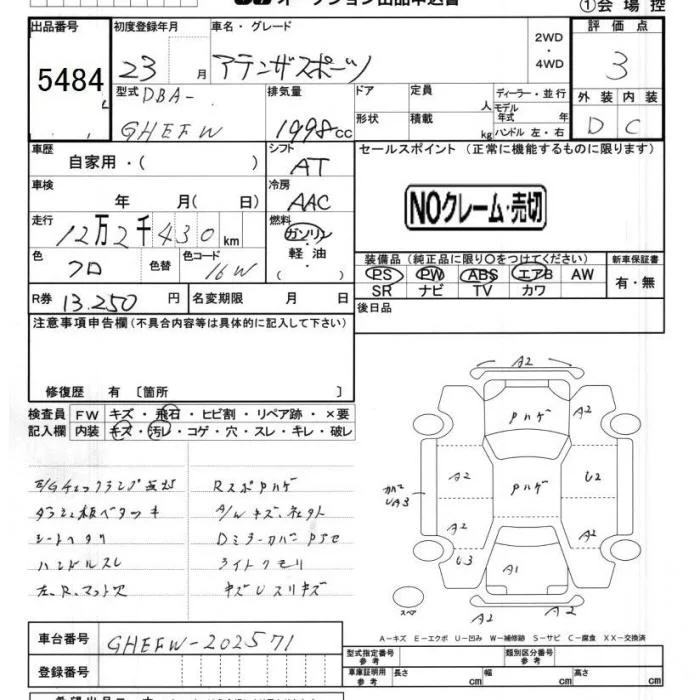 オークション出品申込書
①会場控
出品番号 初度登録年月 車名・グレード 2WD ・4WD 評価点
5484 23月 アテンザスポーツ 3
型式 DBA- GHEFW 排気量 1998cc ドア 定員 人 ディーラー・並行 外装 内装
形状 積載 kg モデル年式 年 ハンドル 左・右 D C
車歴 自家用・( ) シフト AT セールスポイント(正常に機能するものに限ります)
車検 年 月( 日) 冷房 AAC NOクレーム・売切
走行 12万2千430km 燃料 ガソリン・軽油・( )
色 クロ 色替 色コード 16W
装備品(純正品に限り○をつけてください) 新車保証書
PS PW ABS エアB AW 有・無
SR ナビ TV カワ
R券 13.250円 名変期限 月 日 後日品
注意事項申告欄(不具合内容等は具体的に記入して下さい)
修復歴 有〔箇所 〕
検査員 FW キズ・飛石・ヒビ割・リペア跡・×要
記入欄 内装 キズ・汚レ・コゲ・穴・スレ・キレ・破レ
E/Gチェックランプ点灯 RスポPハゲ
ダッシュ板ベタツキ A/Wキズ
シートヘタリ DミラーカバーPSセ
ハンドルスレ ライトクモリ
左.R.マット欠 キズUスリキズ
A2
Pハゲ A2
A2 Pハゲ U2
カバー UA3
A2 A2
U3 A1
スペア A2 A2
A-キズ E-エクボ U-凹み W-補修跡 S-サビ C-腐食 XX-交換済
車台番号 GHEFW-202571
登録番号
型式指定番号 参考 類別区分番号 参考
車庫証明用 参考 長さ cm 幅 cm 高さ cm